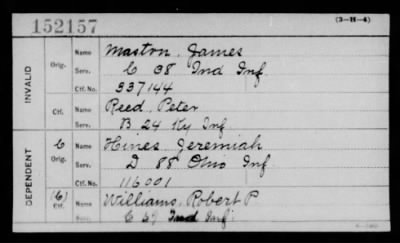 152157
(3-H-4)
INVALID
Orig. Name Maston, James
Serv. C 38 Ind Inf.
Ctf. No. 337144
Ctf. Name Reed, Peter
Serv. B 24 Ky Inf
DEPENDENT
C Orig. Name Hines, Jeremiah
Serv. D 88 Ohio Inf.
Ctf. No. 116001
(C) Ctf. Name Williams, Robert P
Serv. C 59 Ind Inf.